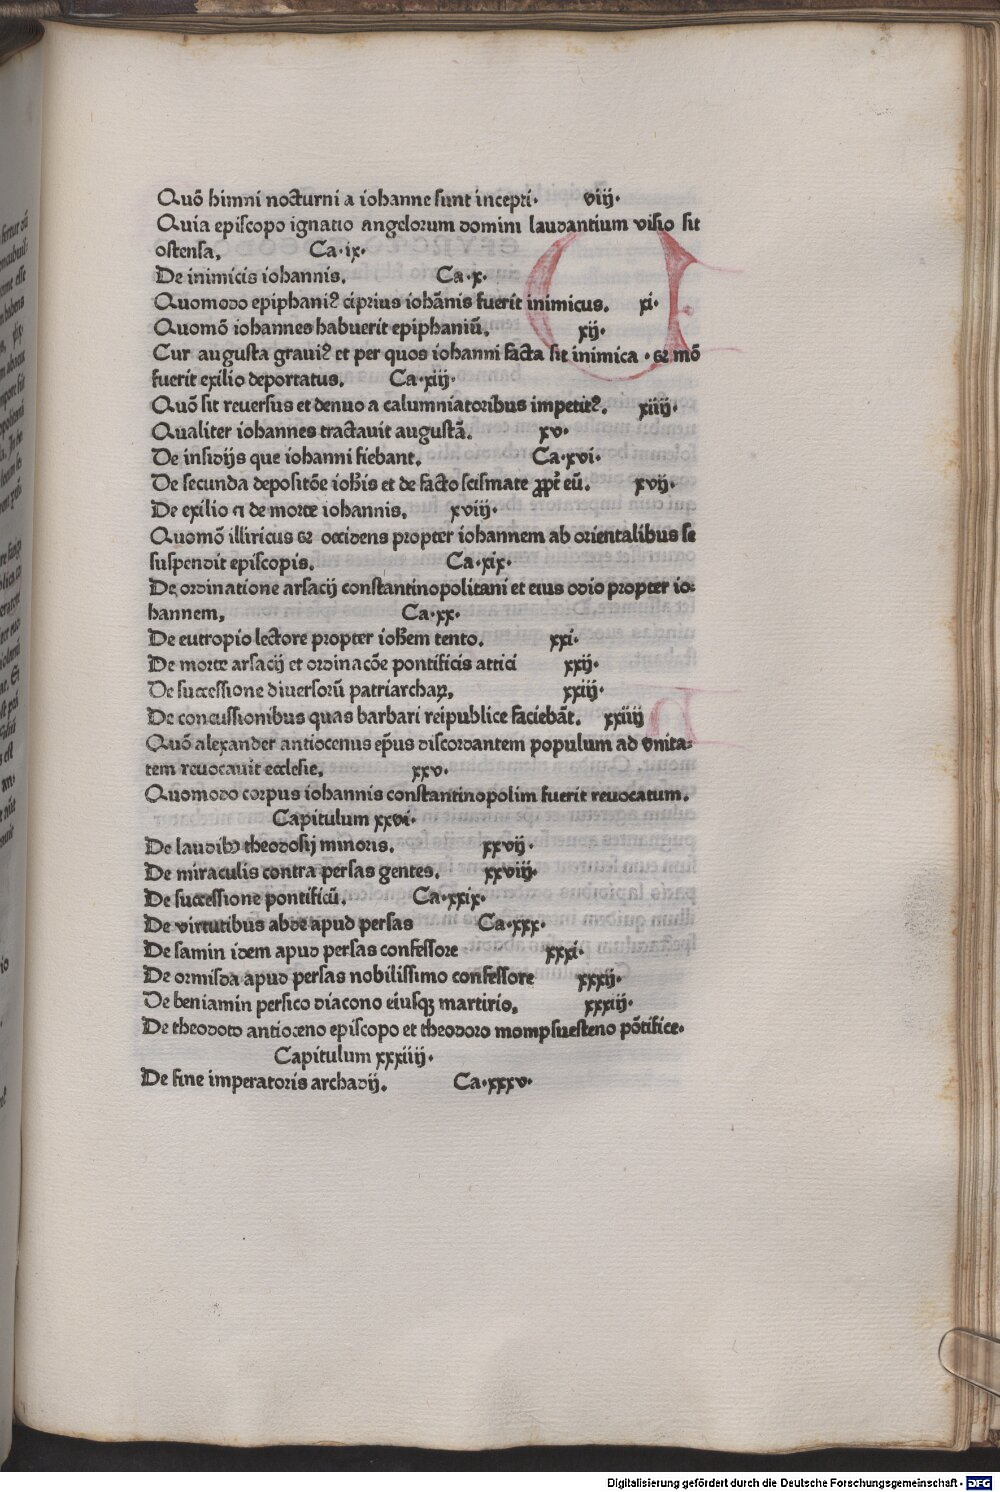 Quō himni nocturni a iohanne sunt incepti· viij·
Quia episcopo ignatio angelorum domini laudantium visio sit
ostensa. Ca·ix·
De inimicis iohannis. Ca·x·
Quomodo epiphaniꝰ ciprius iohānis fuerit inimicus. xi·
Quomō iohannes habuerit epiphaniū. xij·
Cur augusta grauiꝰ et per quos iohanni facta sit inimica · & mō
fuerit exilio deportatus. Ca·xiij·
Quō sit reuersus et denuo a calumniatoribus impetitꝰ. xiiij·
Qualiter iohannes tractauit augustā. xv·
De insidijs que iohanni fiebant. Ca·xvi·
De secunda depositōe ioh̄is et de facto scismate ꝓpt̄ eū. xvij·
De exilio & de morte iohannis. xviij·
Quomō illiricus & occidens propter iohannem ab orientalibus se
suspendit episcopis. Ca·xix·
De ordinatione arsacij constantinopolitani et eius odio propter io-
hannem. Ca·xx·
De eutropio lectore propter ioh̄em tento. xxi·
De morte arsacij et ordinacōe pontificis attici xxij·
De successione diuersorū patriarchaꝝ. xxiij·
De concussionibus quas barbari reipublice faciebāt. xxiiij
Quō alexander antiocenus ep̄us discordantem populum ad vnita-
tem reuocauit ecclesie. xxv·
Quomodo corpus iohannis constantinopolim fuerit reuocatum.
Capitulum xxvi·
De laudibꝰ theodosij minoris. xxvij·
De miraculis contra persas gentes. xxviij·
De successione pontificū. Ca·xxix·
De virtutibus abde apud persas Ca·xxx·
De samin idem apud persas confessore xxxi·
De ormisda apud persas nobilissimo confessore xxxij·
De beniamin persico diacono eiusqꝫ martirio. xxxiij·
De theodoto antioceno episcopo et theodoro mompsuesteno pōtifice·
Capitulum xxxiiij·
De fine imperatoris archadij. Ca·xxxv·
Digitalisierung gefördert durch die Deutsche Forschungsgemeinschaft - DFG